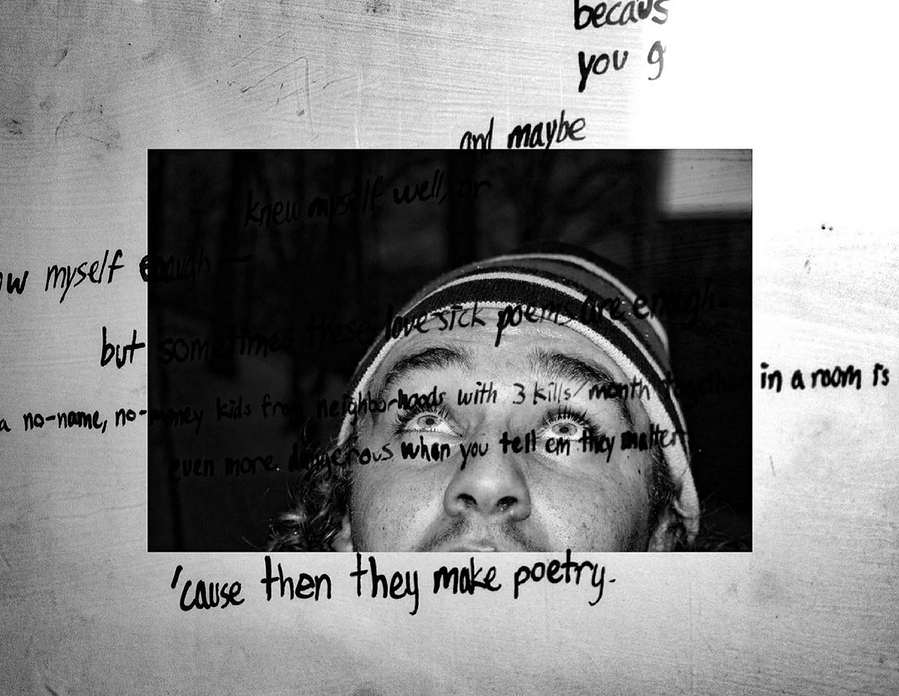 becaus
you g
and maybe
knew myself well, or
ow myself enough —
but sometimes these love sick poems are enough
a no-name, no-money kids from neighborhoods with 3 kills/month in a room is
even more dangerous when you tell em they matter
'cause then they make poetry.